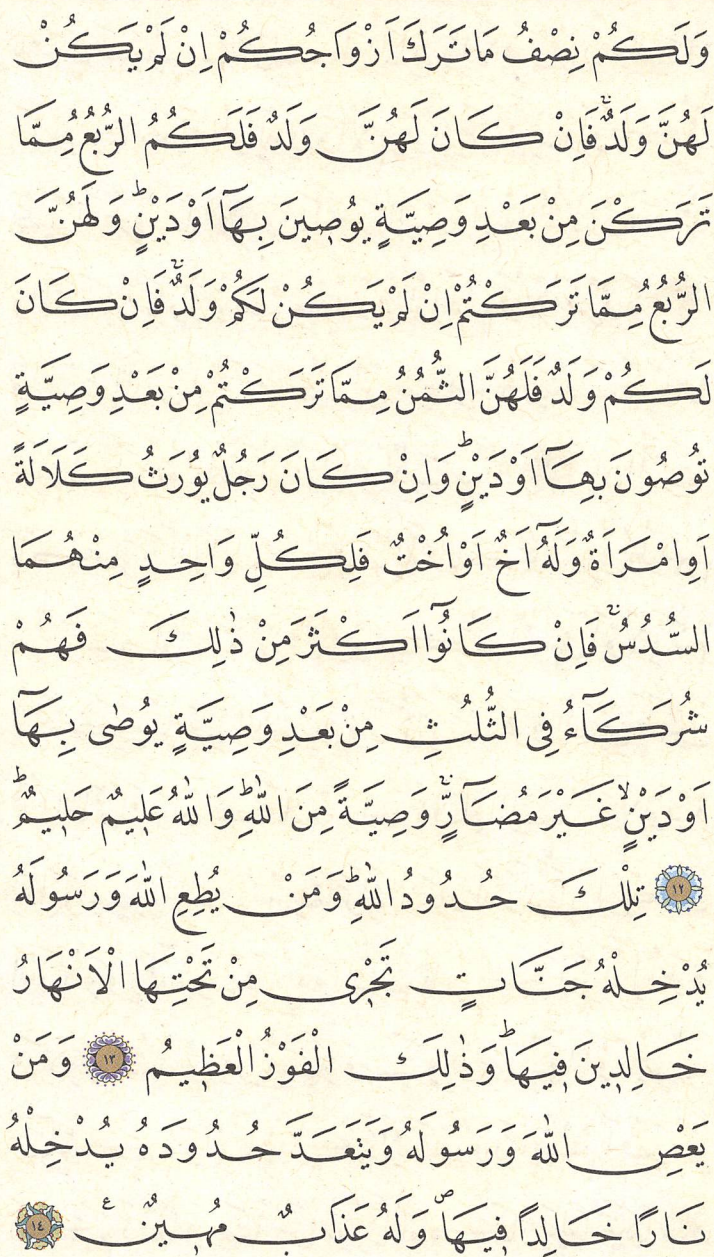 وَلَكُمْ نِصْفُ مَا تَرَكَ اَزْوَاجُكُمْ اِنْ لَمْ يَكُنْ
لَهُنَّ وَلَدٌۚ فَاِنْ كَانَ لَهُنَّ وَلَدٌ فَلَكُمُ الرُّبُعُ مِمَّا
تَرَكْنَ مِنْ بَعْدِ وَصِيَّةٍ يُوصٖينَ بِهَٓا اَوْ دَيْنٍؕ وَلَهُنَّ
الرُّبُعُ مِمَّا تَرَكْتُمْ اِنْ لَمْ يَكُنْ لَكُمْ وَلَدٌۚ فَاِنْ كَانَ
لَكُمْ وَلَدٌ فَلَهُنَّ الثُّمُنُ مِمَّا تَرَكْتُمْ مِنْ بَعْدِ وَصِيَّةٍ
تُوصُونَ بِهَٓا اَوْ دَيْنٍؕ وَاِنْ كَانَ رَجُلٌ يُورَثُ كَلَالَةً
اَوِ امْرَاَةٌ وَلَهُٓ اَخٌ اَوْ اُخْتٌ فَلِكُلِّ وَاحِدٍ مِنْهُمَا
السُّدُسُۚ فَاِنْ كَانُٓوا اَكْثَرَ مِنْ ذٰلِكَ فَهُمْ
شُرَكَٓاءُ فِى الثُّلُثِ مِنْ بَعْدِ وَصِيَّةٍ يُوصٰى بِهَٓا
اَوْ دَيْنٍۙ غَيْرَ مُضَٓارٍّۚ وَصِيَّةً مِنَ اللّٰهِؕ وَاللّٰهُ عَلٖيمٌ حَلٖيمٌؕ
١٢ تِلْكَ حُدُودُ اللّٰهِؕ وَمَنْ يُطِعِ اللّٰهَ وَرَسُولَهُ
يُدْخِلْهُ جَنَّاتٍ تَجْرٖى مِنْ تَحْتِهَا الْاَنْهَارُ
خَالِدٖينَ فٖيهَاؕ وَذٰلِكَ الْفَوْزُ الْعَظٖيمُ ١٣ وَمَنْ
يَعْصِ اللّٰهَ وَرَسُولَهُ وَيَتَعَدَّ حُدُودَهُ يُدْخِلْهُ
نَارًا خَالِدًا فٖيهَاࣕ وَلَهُ عَذَابٌ مُهٖينٌ ع ١٤